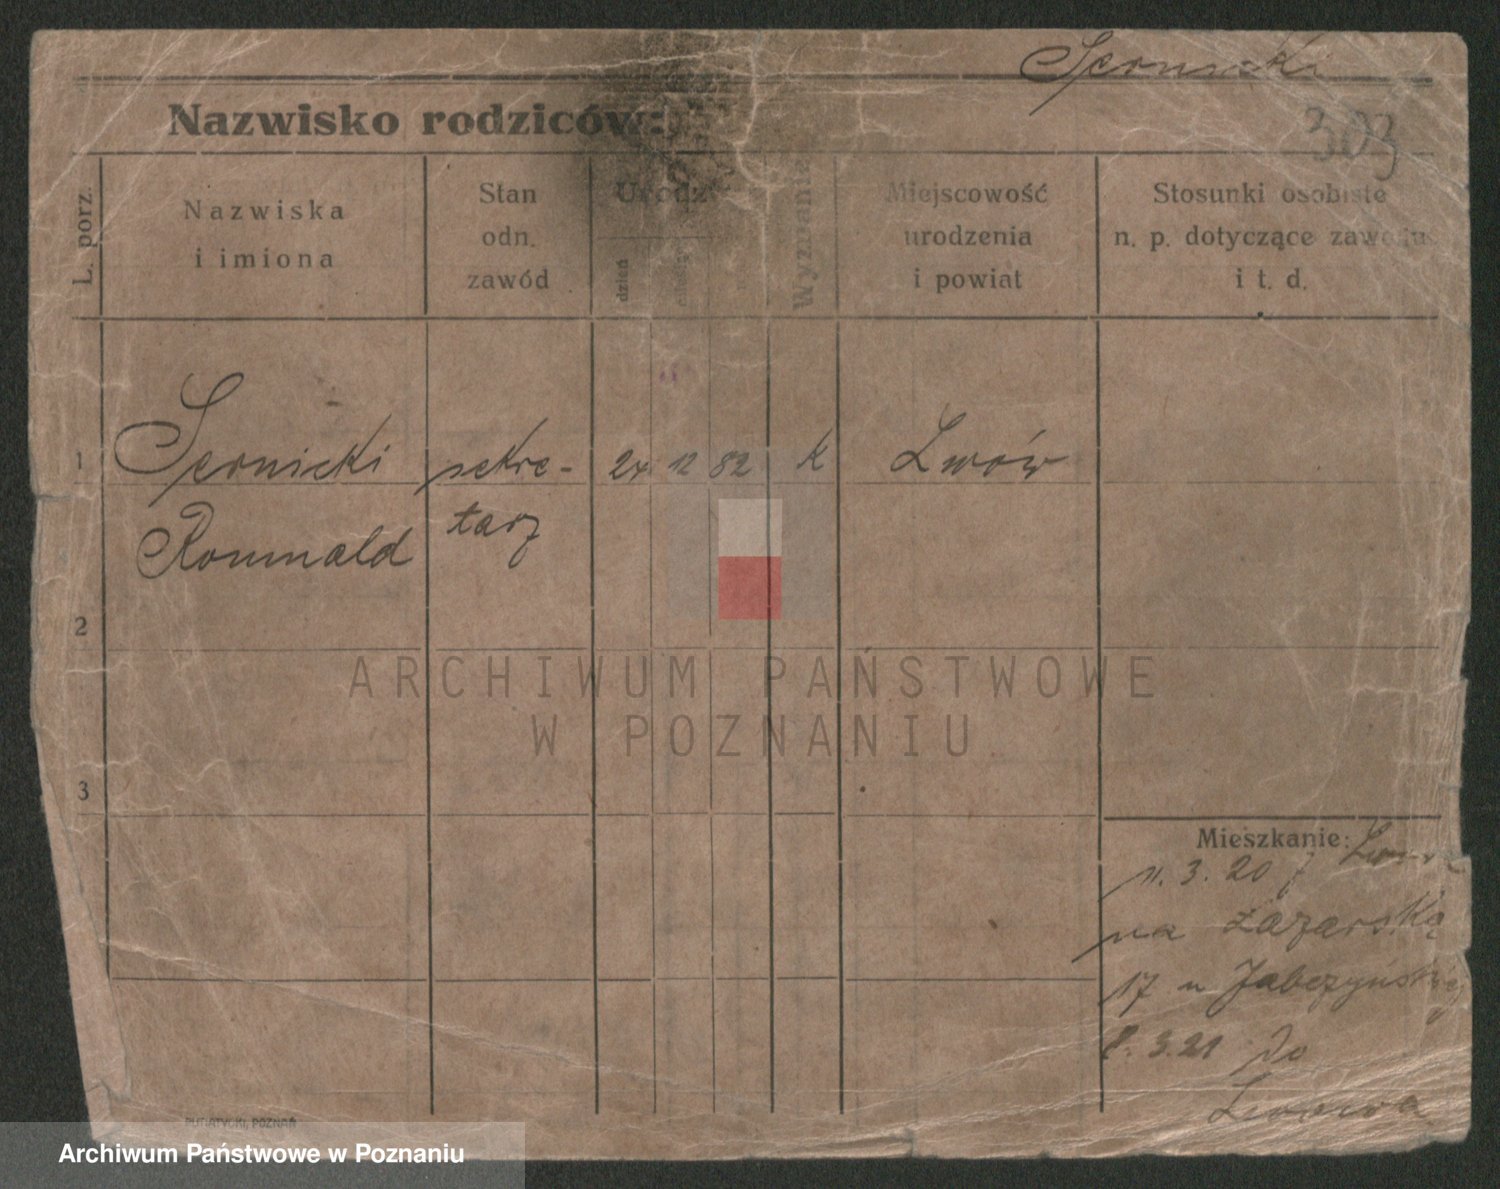 Sernicki
Nazwisko rodziców:
303
L. porz.
Nazwiska
i imiona
Stan
odn.
zawód
Urodz
dzień
Wyznanie
Miejscowość
urodzenia
i powiat
Stosunki osobiste
n. p. dotyczące zawodu
i t. d.
1 Sernicki sekre- 24 12 82 k Lwów
Romuald tarz
2
3
ARCHIWUM PAŃSTWOWE
W POZNANIU
Mieszkanie:
11. 3. 20 z Lwowa
na Łazarską
17 u Jabczyńskiej
8. 3. 21 do
Lwowa
PUTIATYCKI, POZNAŃ
Archiwum Państwowe w Poznaniu